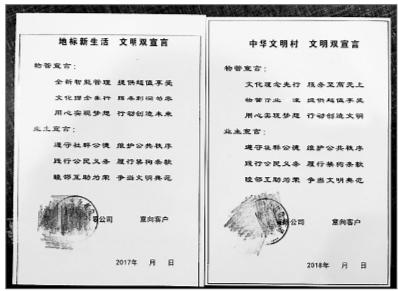 地标新生活 文明双宣言
物管宣言：
全新智能管理 提供超值享受
文化理念先行 服务
用心实现梦想 行动创造未来
业主宣言：
遵守社群公德 维护公共秩序
践行公民义务 履行契约条款
睦邻互助为荣 争当文明典范
公司 意向客户
2017年 月 日
中华文明村 文明双宣言
物管宣言：
文化理念先行 服务至高无上
物管行业一流 提供超值享受
用心实现梦想 行动创造文明
业主宣言：
遵守社群公德 维护公共秩序
践行公民义务 履行契约条款
睦邻互助为荣 争当文明典范
公司 意向客户
2018年 月 日